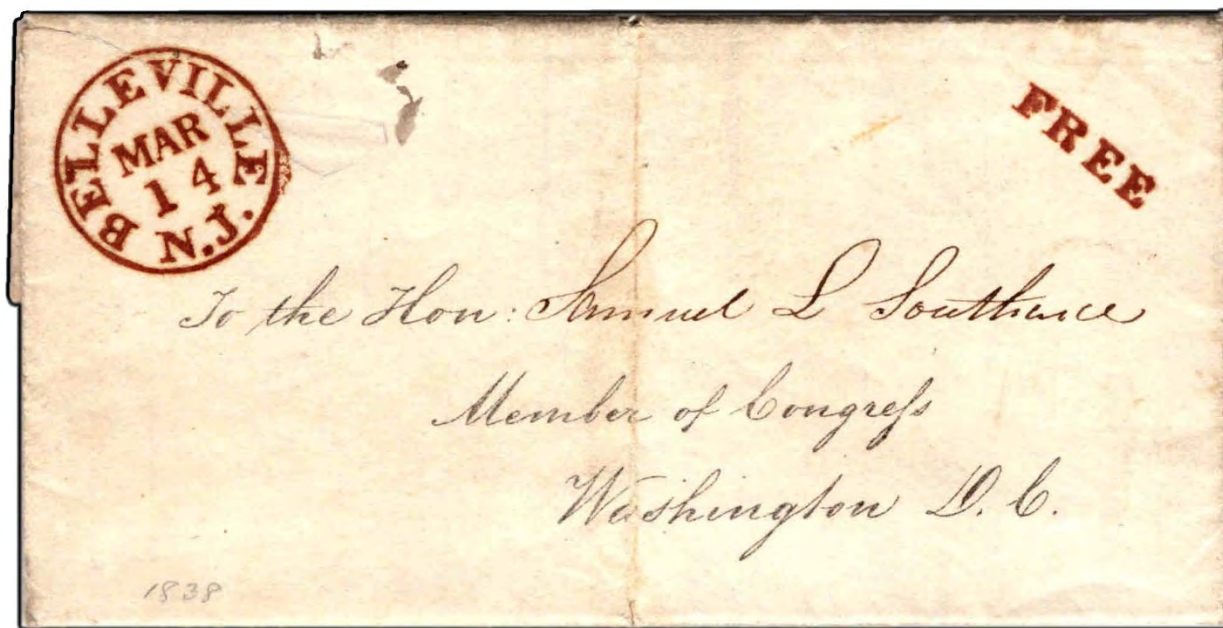 BELLEVILLE N.J.
MAR
14
FREE
To the Hon: Samuel L Southard
Member of Congreſs
Washington D. C.
1838